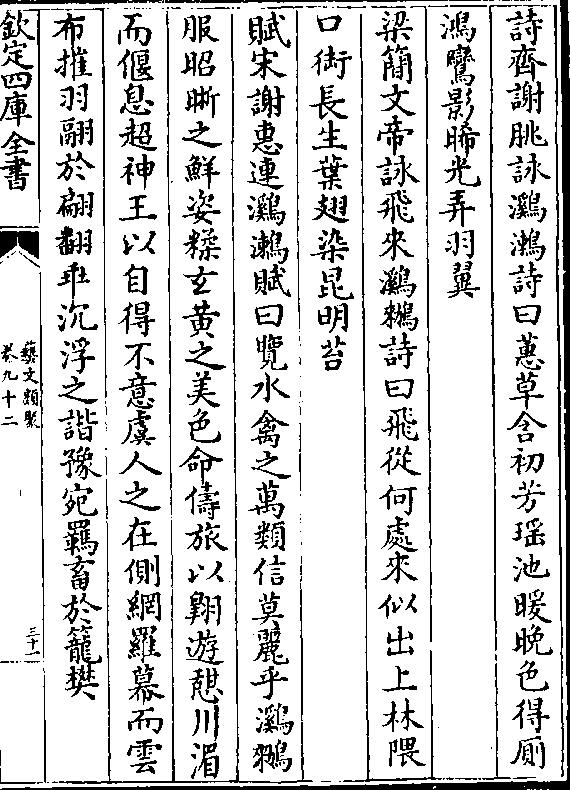 詩齊謝朓詠㶉鶒詩曰蕙草含初芳瑶池暖晚色得厠
鴻鸞影晞光弄羽翼
梁簡文帝詠飛來㶉鶒詩曰飛從何處來似出上林隈
口銜長生葉翅染昆明苔
賦宋謝惠連㶉鶒賦曰覽水禽之萬類信莫麗乎㶉鶒
服昭晣之鮮姿糅玄黄之美色命儔旅以翺遊憇川湄
而偃息超神王以自得不意虞人之在側網羅幕而雲
布摧羽翮於翩翻乖沉浮之諧豫宛羈畜於籠樊
欽定四庫全書
藝文類聚
卷九十二
三十一